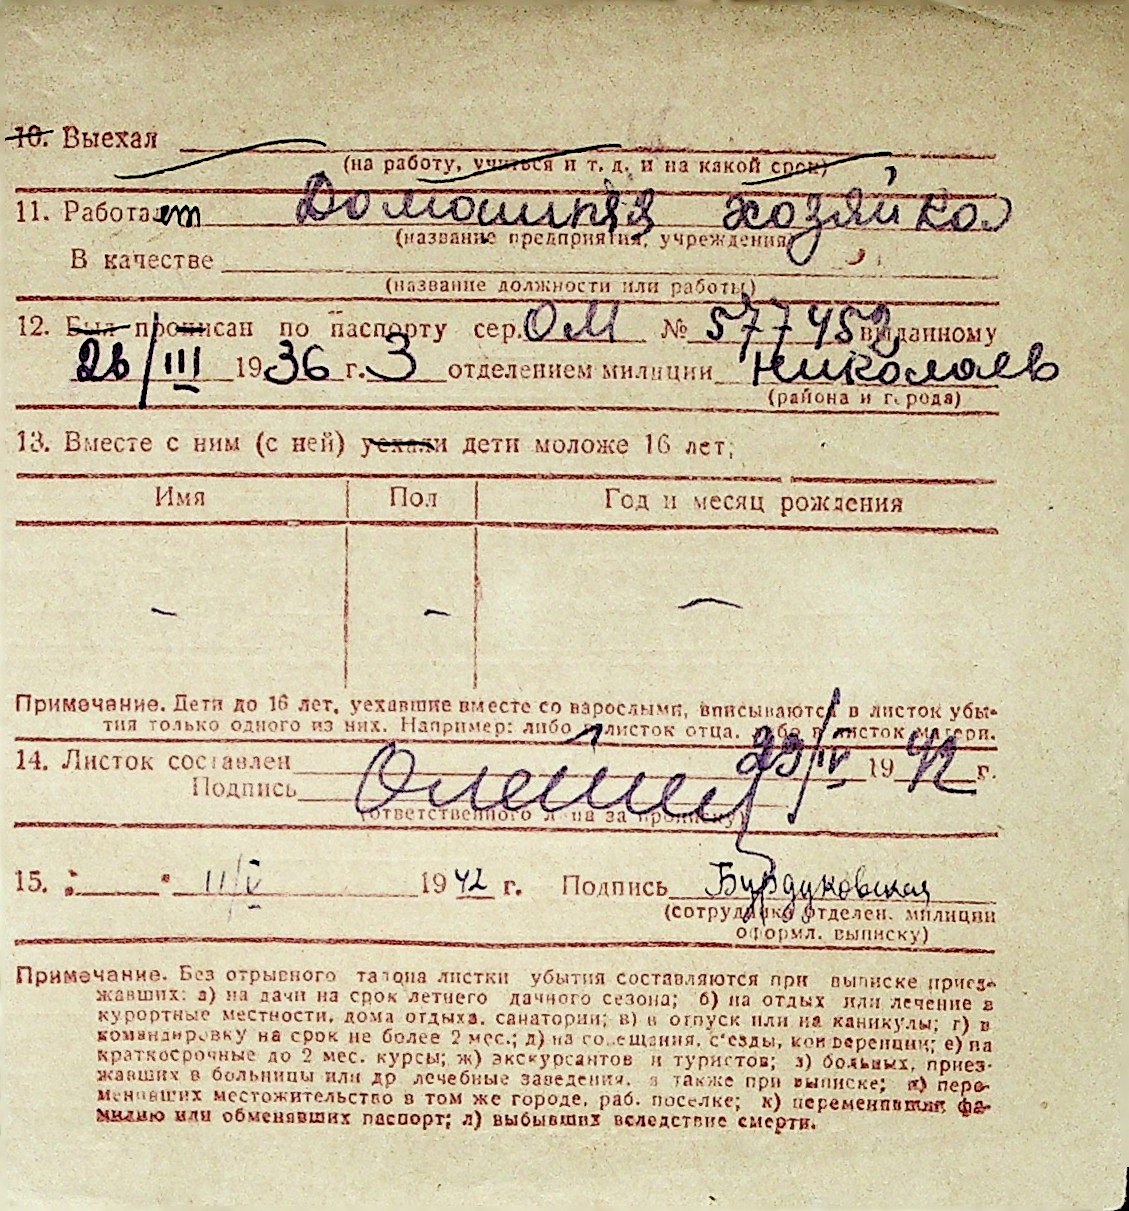 10. Выехал
(на работу, учиться и т. д. и на какой срок)
11. Работает Домашняя хозяйка
(название предприятия, учреждения)
В качестве
(название должности или работы)
12. Был прописан по паспорту сер. ОМ № 577452 выданному
26/III 1936 г. 3 отделением милиции Николаев
(района и города)
13. Вместе с ним (с ней) уехали дети моложе 16 лет:
Имя Пол Год и месяц рождения
— — —
Примечание. Дети до 16 лет, уехавшие вместе со взрослыми, вписываются в листок убы-
тия только одного из них. Например: либо в листок отца, либо в листок матери.
14. Листок составлен 29/IV 1942 г.
Подпись
(ответственного лица за прописку)
15. " " 11/V 1942 г. Подпись Бурдуковская
(сотрудника отделен. милиции
оформл. выписку)
Примечание. Без отрывного талона листки убытия составляются при выписке приез-
жавших: а) на дачи на срок летнего дачного сезона; б) на отдых или лечение в
курортные местности, дома отдыха, санатории; в) в отпуск или на каникулы; г) в
командировку на срок не более 2 мес.; д) на совещания, с'езды, конференции; е) на
краткосрочные до 2 мес. курсы; ж) экскурсантов и туристов; з) больных, приез-
жавших в больницы или др лечебные заведения, а также при выписке; и) пере-
менивших местожительство в том же городе, раб. поселке; к) переменивших фа-
милию или обменявших паспорт; л) выбывших вследствие смерти.